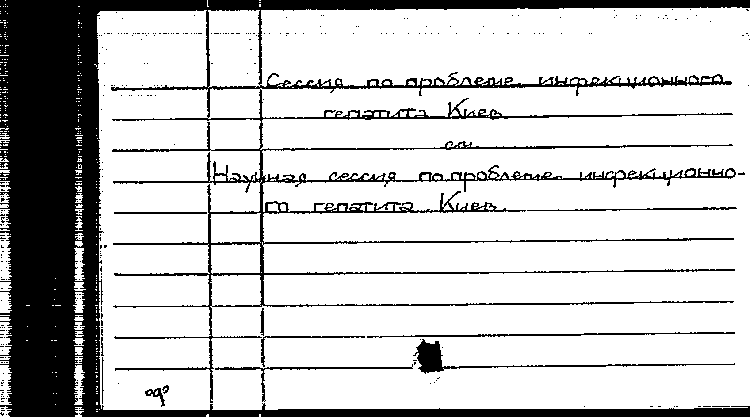 Сессия по проблеме инфекционного
гепатита Киев
см.
Научная сессия по проблеме инфекционно-
го гепатита Киев